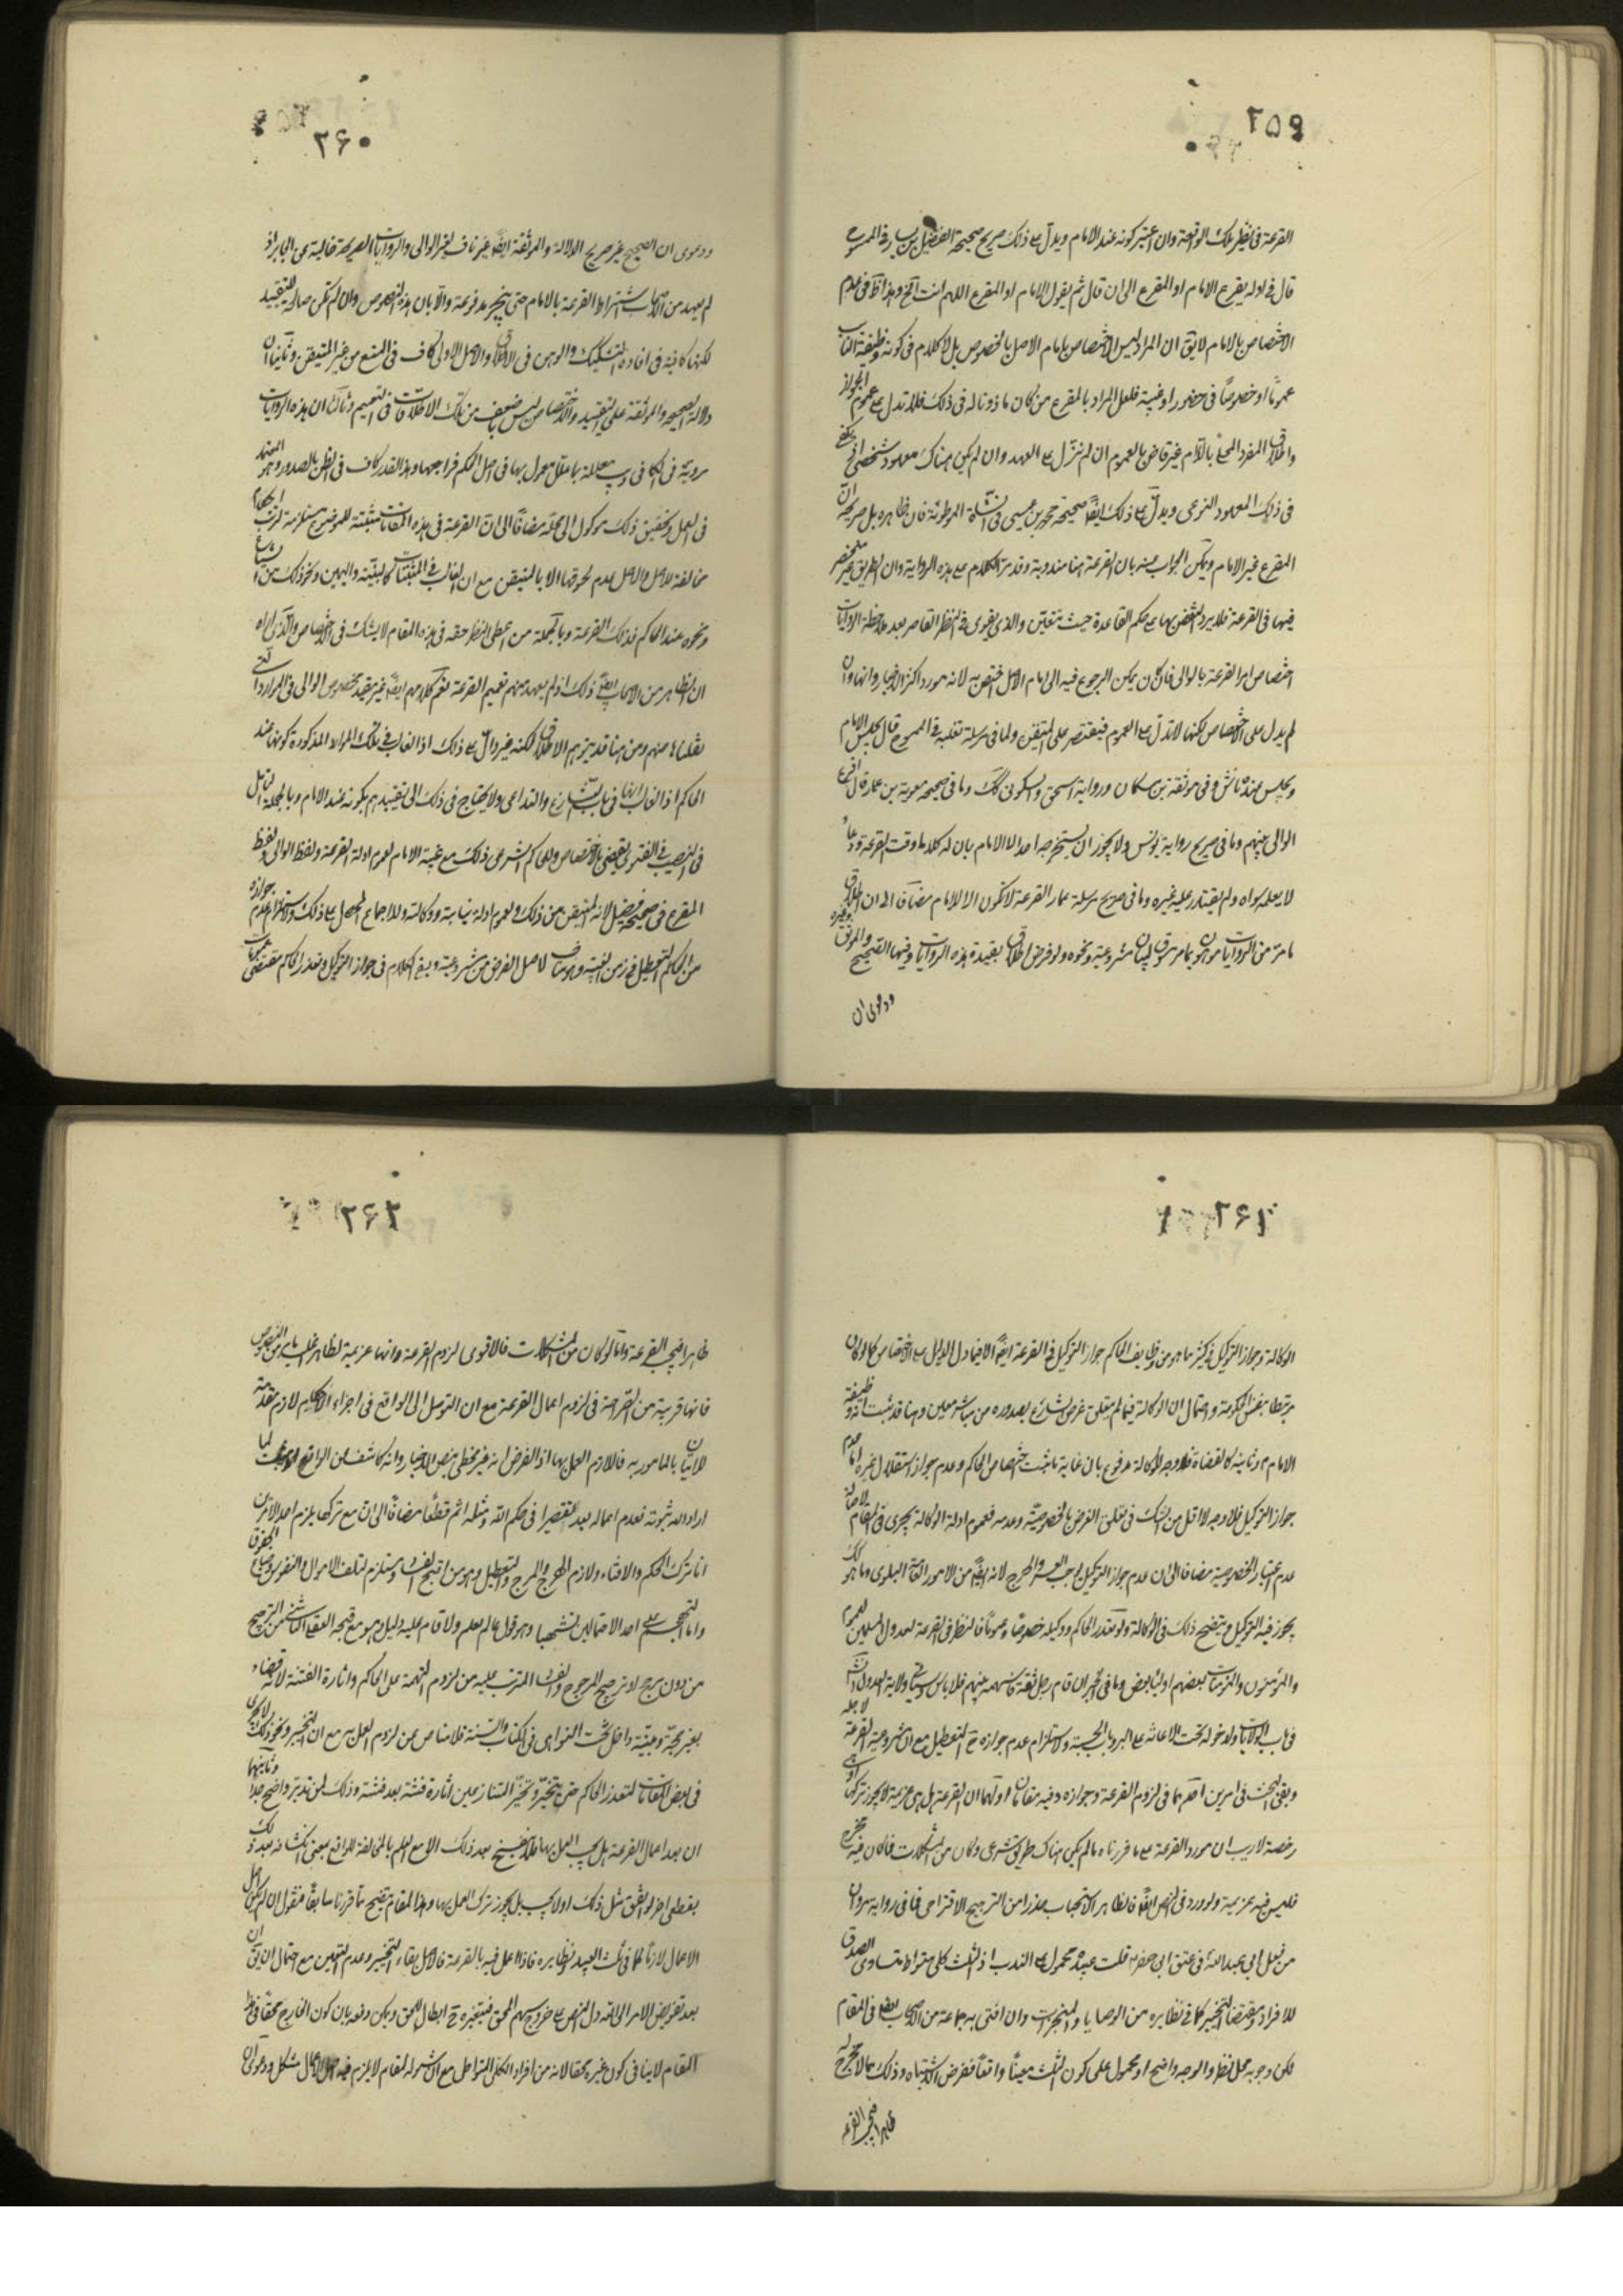 ۲۵۹
القرعة في نظر تلك الواقعة وان اعتبر كونه عند الامام ويدل على ذلك صريح صحيحة الفضيل بن يسار في الممسوح
قال في اوله يقرع الامام او المقرع الى ان قال ثم يقول الامام او المقرع اللهم انت الخ وهذا ظ في عدم
الاختصاص بالامام لا يق ان المراد ليس الاختصاص بامام الاصل بالخصوص بل لا كلام في كونه وظيفة النائب
عموما او خصوصا في حضور او غيبة فلعل المراد بالمقرع من كان ماذونا له في ذلك فلا تدل على عموم الجواز
واطلاق المفرد المحلى باللام غير قاض بالعموم ان لم ننزل على العهد وان لم يكن هناك معهود شخصي اذ يكفي
في ذلك المعهود النوعي ويدل على ذلك ايضا صحيحة محمد بن عيسى في الشاة الموطوئة فان ظاهره بل صريحه ان
المقرع غير الامام ويمكن الجواب عنه بان القرعة هنا مندوبة وقد مر الكلام على هذه الرواية وان الطريق غير منحصر
فيها في القرعة فلا يرد النقض بها على حكم القاعدة حيث تتعين والذي يقوى في النظر القاصر بعد ملاحظة الروايات
اختصاص امر القرعة بالوالي فان كان يمكن الرجوع فيه الى امام الاصل اختص به لانه مورد اكثر الاخبار وانها وان
لم يدل على الاختصاص لكنها لا تدل على العموم فيقتصر على المتيقن ولما في مرسلة ثعلبة في الممسوح قال يجلس الامام
ويجلس عنده ناس وفي موثقة بن مسكان ورواية اسحق والسكوني كك وما في صحيحة معوية بن عمار قال اقرع
الوالي بينهم وما في صريح رواية يونس ولا يجوز ان يستخرجه احد الا الامام بان له كلاما وقت القرعة ودعاء
لا يعلمه سواه ولم يقتدر عليه غيره وما في صريح مرسلة حماد القرعة لا تكون الا للامام مضافا الى ان اطلاق
ما مر من الروايات موهون بما مر مسوق لبيان مشروعيته ونحوه ولو فرض اطلاق بقيده هذه الروايات وفيها الصحيح والموثق وغيره
ودعوى ان
۲۶۰
ودعوى ان الصحيح غير صريح الدلالة والموثقة ايضا غير ناف لغير الوالي والروايات الصريحة خالية عن الجابر اذ
لم يعهد من الاصحاب اشتراط القرعة بالامام حتى ينجبر مدفوعة والا بان هذه النصوص وان لم تكن صالحة للتقييد
لكنها كافية في افادة التشكيك والوهن في الاطلاق والاصل الاولى كاف في المنع من غير المتيقن وثانيا ان
دلالة الصحيحة والموثقة على التقييد والاختصاص ليس باضعف من تلك الاطلاقات في التعميم وثالثا ان هذه الروايات
مروية في الكافي ويب معللة بما علل معمول بها في اصل الحكم فراجعها وهذا القدر كاف في الظن بالصدور وهو المعتمد
في العمل وتحقيق ذلك موكول الى محله مضافا الى ان القرعة في هذه المقامات مثبتة للموضوع مستلزمة لترتب احكام
مخالفة للاصل والاصل عدم لحوقها الا بالمتيقن مع ان الغالب في المثبتات كالبينة واليمين ونحو ذلك من الشياع
ونحوه عند الحاكم فذلك القرعة وبالجملة من اعطى النظر حقه في هذه المقام لا يشك في الاختصاص والذي اراه
ان الظاهر من الاصحاب ايضا ذلك اذ لم يعهد منهم تعميم القرعة نعم كلامهم ايضا غير مقيد بخصوص الوالي في الموارد التي
نقلناها منهم ومن هنا قد يتوهم الاطلاق لكنه غير دال على ذلك اذ الغالب في تلك الموارد المذكورة كونها عند
الحاكم اذ الغالب ايضا في باب التنازع والتداعي ولا يحتاج في ذلك الى تقييدهم بكونه عند الامام وبالجملة التامل
في النصب في الفتوى يقضي بالاختصاص وللحاكم الشرعي ذلك مع غيبة الامام لعموم ادلة القرعة ولفظ الوالي ولفظ
المقرع في صحيحة فضيل لانه المتيقن من ذلك ولعموم ادلة نيابته ووكالته وللاجماع المحصل على ذلك ولاستلزام عدم جوازه
من الحاكم التعطيل في زمن الغيبة وهو مناف لاصل الغرض من شرعيته وبقى الكلام في جواز التوكيل وتعذر الحاكم مقتضى عمومات
۲۶۱
الوكالة وجواز التوكيل في كثير ما هو من وظايف الحاكم جواز التوكيل في القرعة ايضا الا فيما دل الدليل على الاختصاص كما لو كان
مرتبطا بنفس الحكومة واحتمال ان الوكالة فيما لم يتعلق غرض الشارع بصدوره من مباشر معين وهنا قد ثبت انه وظيفة
الامام ونائبه كالقضاء فلا وجه للوكالة مدفوع بان غاية ما ثبت اختصاص الحاكم وعدم جواز استقلال غيره اما عدم
جواز التوكيل فلا وجه له لا اقل من الشك في تعلق الغرض بالخصوصية وعدمه فعموم ادلة الوكالة يجري في المقام لاصالة
عدم اعتبار الخصوصية مضافا الى ان عدم جواز التوكيل يوجب العسر والحرج لانه ايضا من الامور العامة البلوى وما هو كك
يجوز فيه التوكيل ويتضح ذلك في الوكالة ولو تعذر الحاكم ووكيله خصوصا وعموما فالنظر في القرعة لعدول المسلمين لعموم
والمؤمنون والمؤمنات بعضهم اولياء بعض وما في الخبر ان قام رجل ثقة قاسمهم بينهم فلا باس وسياتي ولاية العدول انشاء
في باب الولايات ولدخوله تحت الاعانة على البر وباب الحسبة ولاستلزام عدم جوازه ح التعطيل مع ان مشروعية القرعة لاجله
وبقى البحث في امرين احدهما في لزوم القرعة وجوازه وفيه مقامان اولهما ان القرعة هل هي عزيمة لا يجوز تركها او هي
رخصة لا ريب ان مورد القرعة على ما قررناه ما لم يكن هناك طريق شرعي وكان من المشكلات فما كان فيه مخرج
فليس فيه بعزيمة ولو ورد في النص ايضا فالظاهر الاستحباب حذرا من الترجيح الاقتراحي فما في رواية مروان
من فعل ابي عبد الله في عتق ابي جعفر ثلث عبيده محمول على الندب اذ الثلث كلي متواط متساوي الصدق
للافراد ومقتضاه التخيير كما في نظايره من الوصايا والمنجزات وان افتى به جماعة من الاصحاب بعض في المقام
لكن وجوبه محل نظر والوجه واضح او محمول على كون الثلث معينا واقعا ففرض الاشتباه وذلك مما لا مخرج له
ظاهرا فيجب القرعة
۲۶۲
ظاهرا فيجب القرعة واما لو كان من المشكلات فالاقوى لزوم القرعة وانها عزيمة لظاهر اغلب ما مر من النصوص
فانها قريبة من الصراحة في لزوم اعمال القرعة مع ان التوصل الى الواقع في اجراء الاحكام لازم مقدمة
للاتيان بالمامور به فاللازم العمل بها اذ الفرض انه غير مخطى بنص الاخبار وانه كاشف عن الواقع
اراد الله ثبوته فعدم اعماله يعد تقصيرا في حكم الله ومثله اثم قطعا مضافا الى ان مع تركها يلزم احد الامرين
اما ترك الحكم والافتاء ولازم الهرج والمرج والتعطيل وهو من اقبح المفاسد ومستلزم لتلف الاموال والنفوس وضياع الحقوق
واما التهجم على احد الاحتمالين تشهيا وهو قول ما لم يعلم ولا قام عليه دليل وهو مع قبحه العقلي الناشئ من الترجيح
من دون مرجح او ترجيح المرجوح والمفاسد المترتب عليه من لزوم التهمة على الحاكم واثارة الفتنة لانه قضاء
بغير حجة وبينة داخل تحت النواهي في الكتاب والسنة فلا مناص عن لزوم العمل به مع ان التخيير ونحو ذلك لا يجري
في بعض المقامات لتعذر الحاكم حتى يتخير وتخير المتنازعين اثارة فتنة بعد فتنة وذلك لمن تدبر واضح جدا وثانيهما
ان بعد اعمال القرعة هل يجب العمل بها فلا ينفسخ بعد ذلك الا مع العلم بالمخالفة للواقع بمعنى انكشافه بعد ذلك
بقطعي اخر لو اتفق مثل ذلك او لا يجب بل يجوز ترك العمل بها وهذا المقام يتضح مما قررنا سابقا فنقول ان لم يكن اصل
الاعمال لازما كما في ثلث العبيد ونظايره فاذا اعمل فيه بالقرعة فالاصل بقاء التخيير وعدم التعيين مع احتمال ان يق ان
بعد تفويض الامر الى الله دل النص على خروج سهم المحق فتغيره ح ابطال للحق ويمكن دفعه بان كون الخارج محقا في هذا
المقام لا ينافي كون غيره محقا لانه من افراد الكلي المتواطي مع ان شموله لمقام لا يلزم فيه اصل الاعمال مشكل ودعوى ان